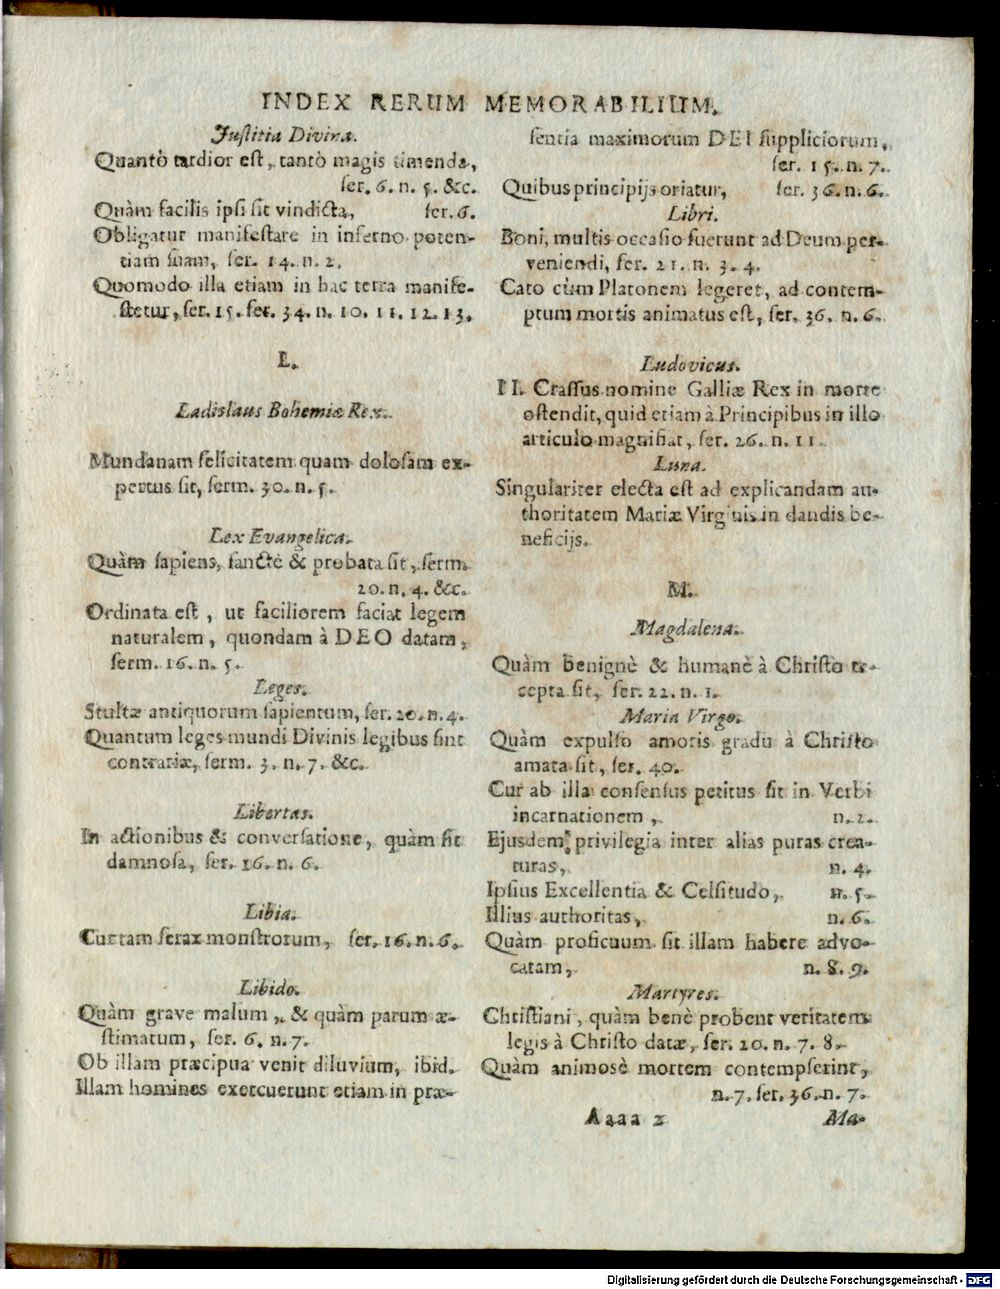 INDEX RERUM MEMORABILIUM.
Justitia Divina.
Quantò tardior est, tantò magis timenda,
ser. 6. n. 5. &c.
Quàm facilis ipsi sit vindicta, ser. 6.
Obligatur manifestare in inferno poten-
tiam suam, ser. 14. n. 2.
Quomodo illa etiam in hac terra manife-
stetur, ser. 15. ser. 34. n. 10. 11. 12. 13.
L.
Ladislaus Bohemiæ Rex.
Mundanam felicitatem quam dolosam ex-
pertus sit, serm. 30. n. 5.
Lex Evangelica.
Quàm sapiens, sanctè & probata sit, serm.
20. n. 4. &c.
Ordinata est, ut faciliorem faciat legem
naturalem, quondam à DEO datam,
serm. 16. n. 5.
Leges.
Stultæ antiquorum sapientum, ser. 20. n. 4.
Quantum leges mundi Divinis legibus sint
contrariæ, serm. 3. n. 7. &c.
Libertas.
In actionibus & conversatione, quàm sit
damnosa, ser. 16. n. 6.
Libia.
Cur tam ferax monstrorum, ser. 16. n. 6.
Libido.
Quàm grave malum, & quàm parum æ-
stimatum, ser. 6. n. 7.
Ob illam præcipua venit diluvium, ibid.
Illam homines exercuerunt etiam in præ-
sentia maximorum DEI suppliciorum,
ser. 15. n. 7.
Quibus principijs oriatur, ser. 36. n. 6.
Libri.
Boni, multis occasio fuerunt ad Deum per-
veniendi, ser. 21. n. 3. 4.
Cato cùm Platonem legeret, ad contem-
ptum mortis animatus est, ser. 36. n. 6.
Ludovicus.
II. Crassus nomine Galliæ Rex in morte
ostendit, quid etiam à Principibus in illo
articulo magnifiat, ser. 26. n. 11.
Luna.
Singulariter electa est ad explicandam au-
thoritatem Mariæ Virginis in dandis be-
neficijs.
M.
Magdalena.
Quàm benignè & humanè à Christo re-
cepta sit, ser. 22. n. 1.
Maria Virgo.
Quàm expulso amoris gradu à Christo
amata sit, ser. 40.
Cur ab illa consensus petitus sit in Verbi
incarnationem, n. 2.
Ejusdem privilegia inter alias puras crea-
turas, n. 4.
Ipsius Excellentia & Celsitudo, n. 5.
Illius authoritas, n. 6.
Quàm proficuum sit illam habere advo-
catam, n. 8. 9.
Martyres.
Christiani, quàm benè probent veritatem
legis à Christo datæ, ser. 20. n. 7. 8.
Quàm animosè mortem contempserint,
n. 7. ser. 36. n. 7.
Aaaa 2 Ma-
Digitalisierung gefördert durch die Deutsche Forschungsgemeinschaft - DFG